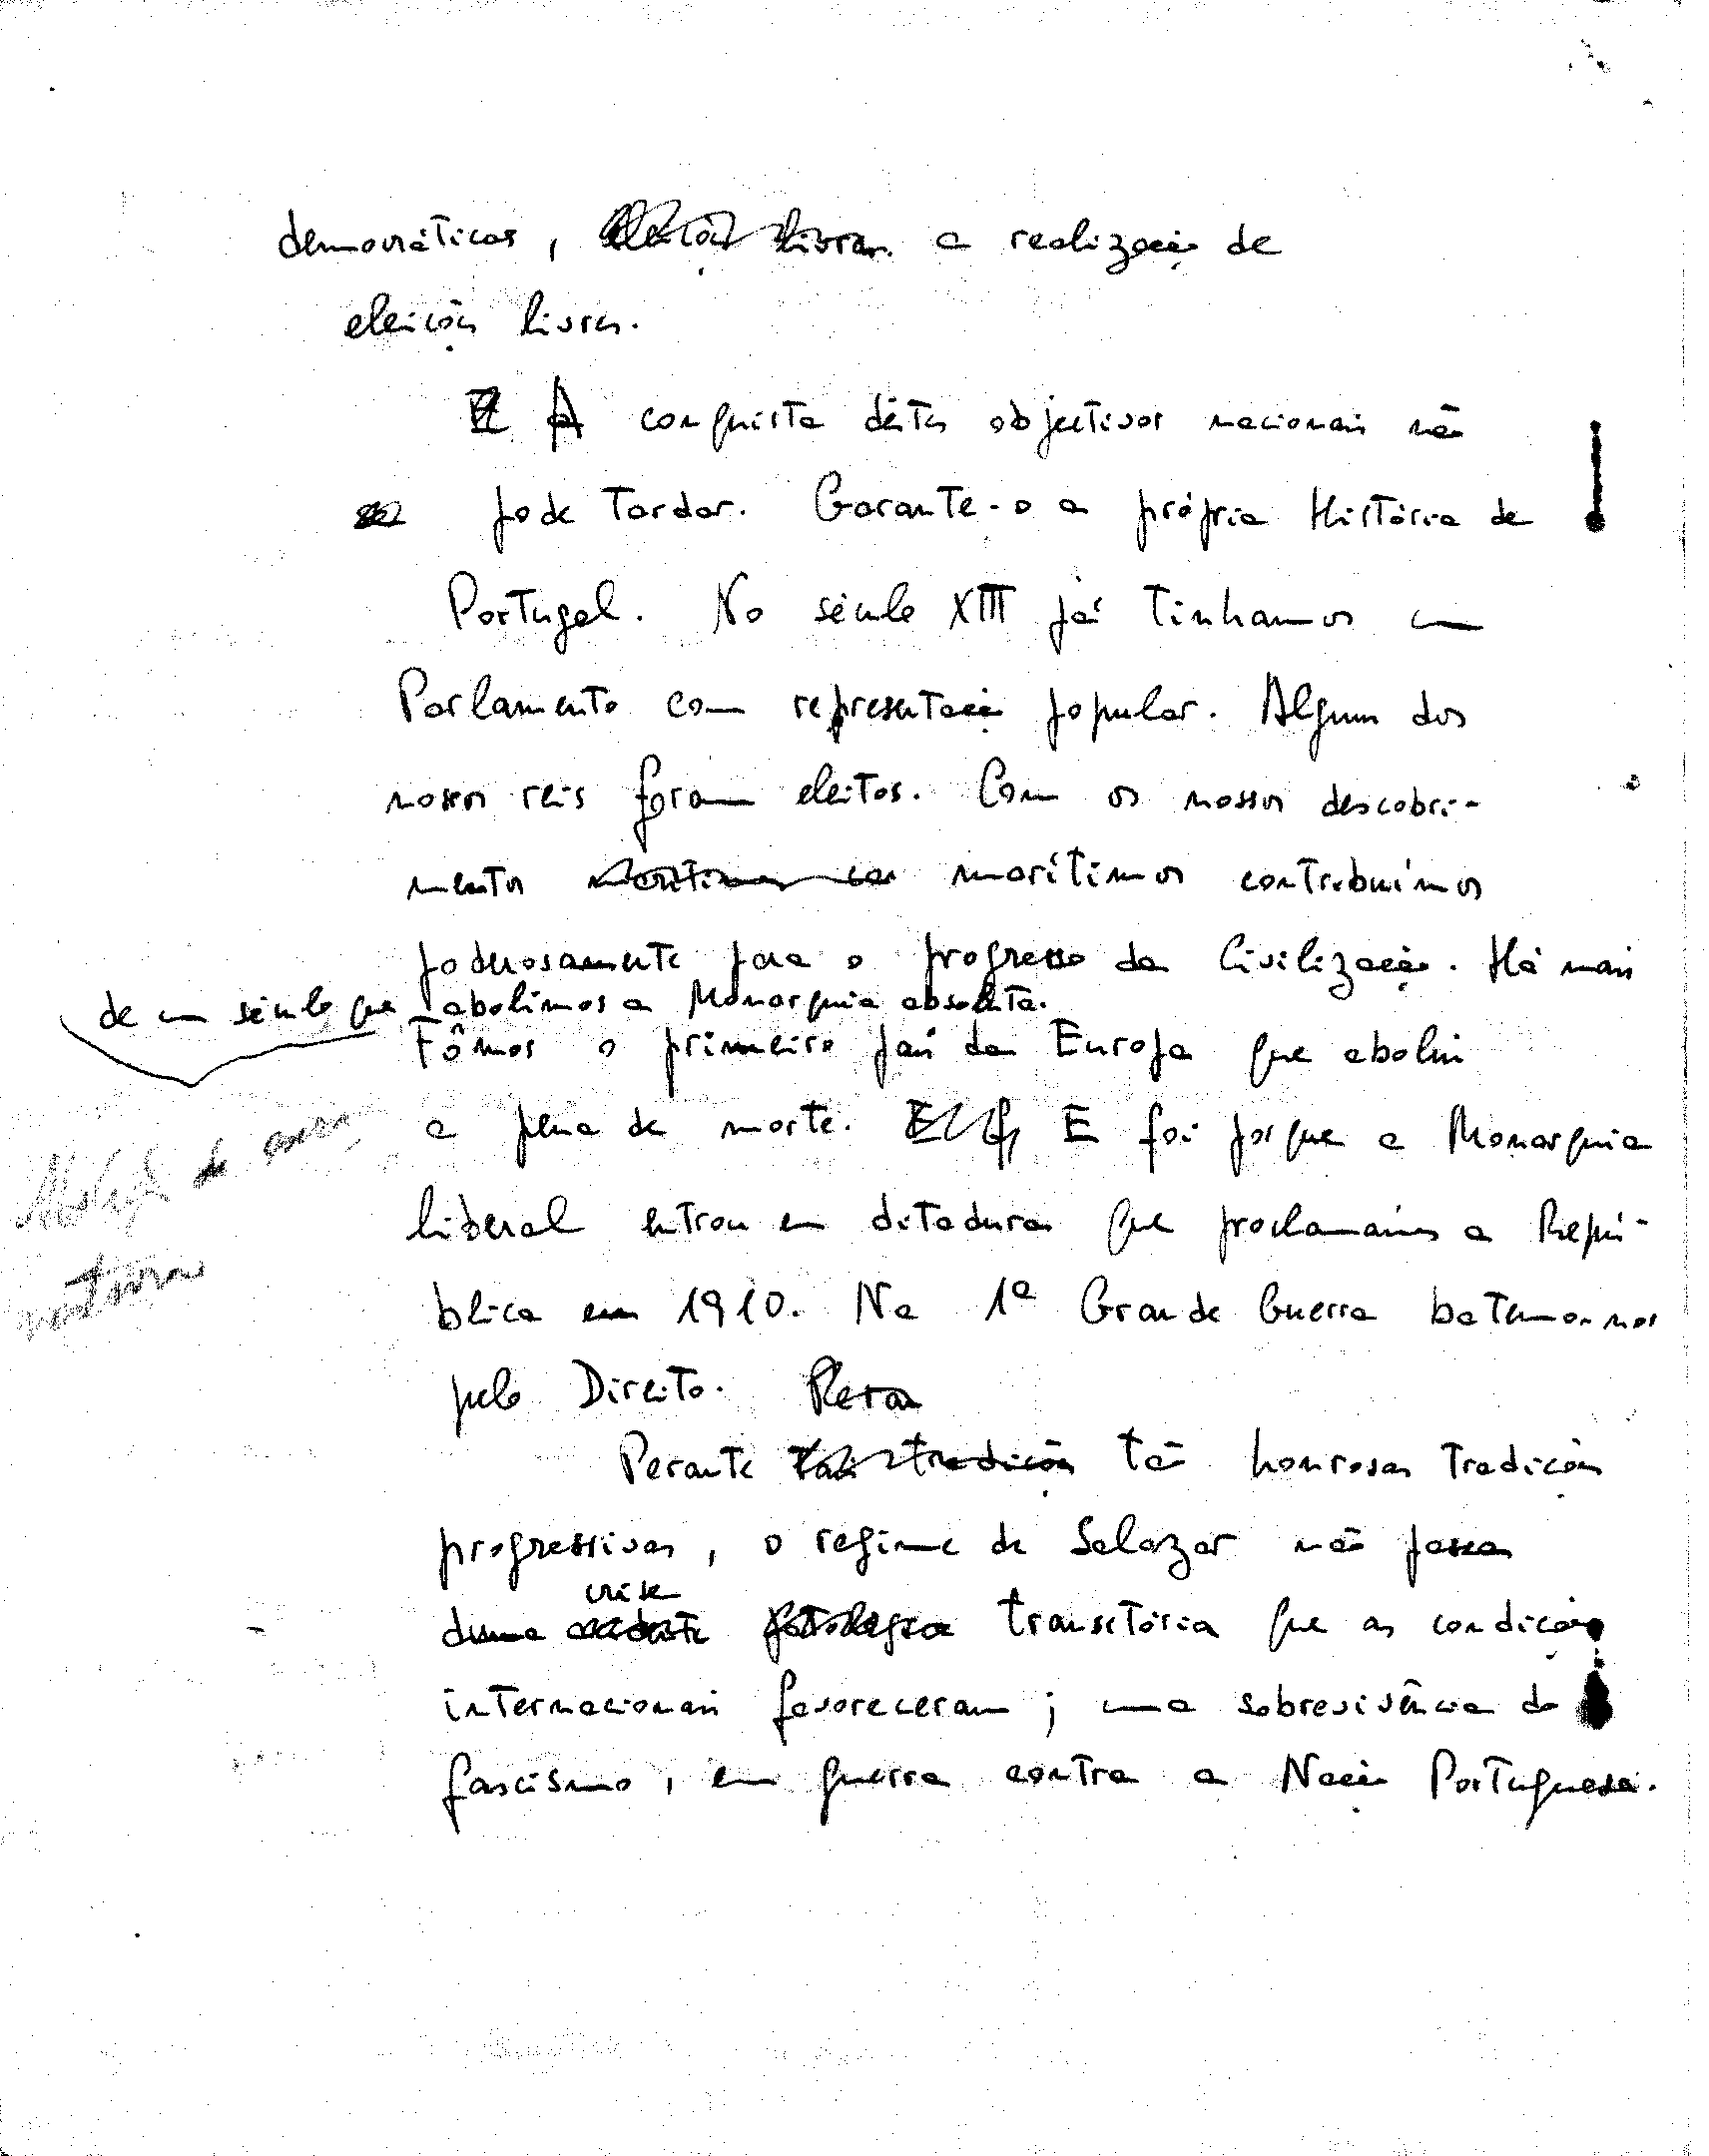 democráticas, eleições livres. a realização de
eleições livres.
E A conquista dêstes objectivos nacionais não
pode tardar. Garante-o a própria História de
Portugal. No século XIII já tinhamos um
Parlamento com representação popular. Alguns dos
nossos reis foram eleitos. Com os nossos descobri-
mentos marítimos marítimos contribuímos
poderosamente para o progresso da Civilização. Há mais
de um século que abolimos a Monarquia absoluta.
Fômos o primeiro país da Europa que aboliu
a pena de morte. E E foi porque a Monarquia
liberal entrou em ditadura que proclamámos a Repú-
blica em 1910. Na 1ª Grande Guerra batemo-nos
pelo Direito. Pera
Perante tais tradições tão honrosas tradições
progressivas, o regime de Salazar não passa
crise
duma transitória que as condições
internacionais favoreceram; uma sobrevivência do
fascismo, em guerra contra a Nação Portuguesa.